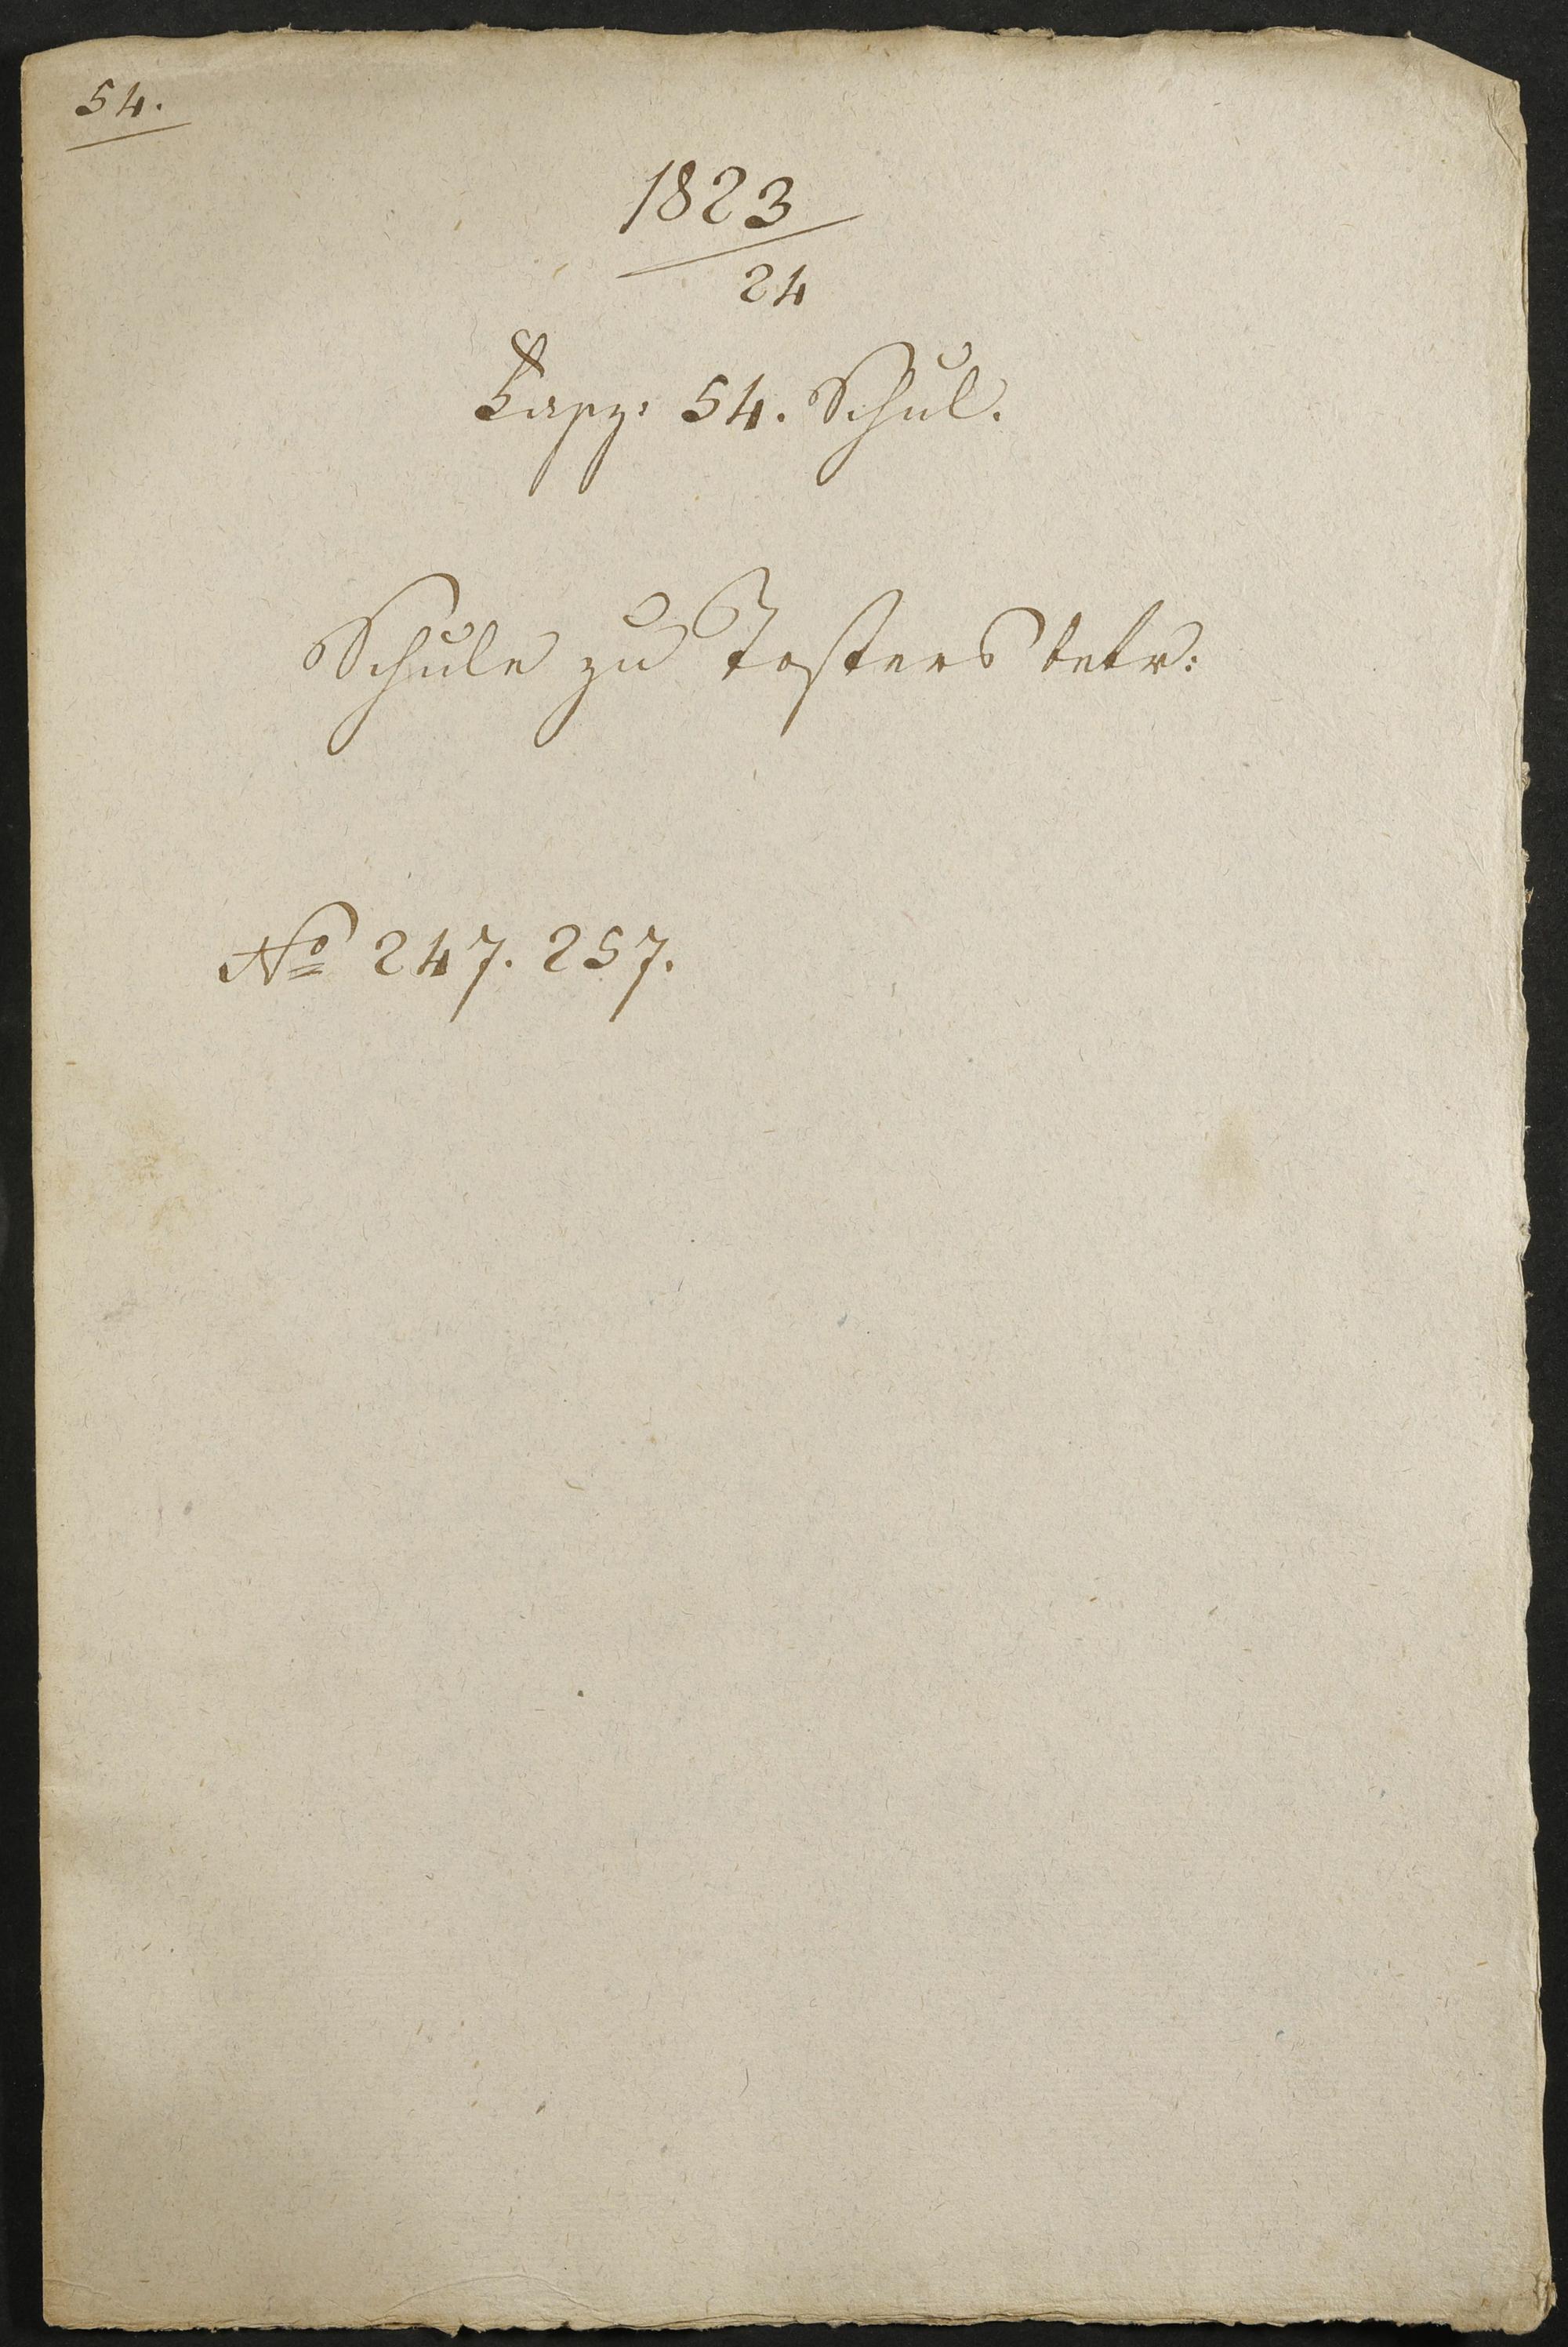 54.
1823
24
Fasz: 54. Schul.
Schule zu Tosters betr:
No 247. 257.